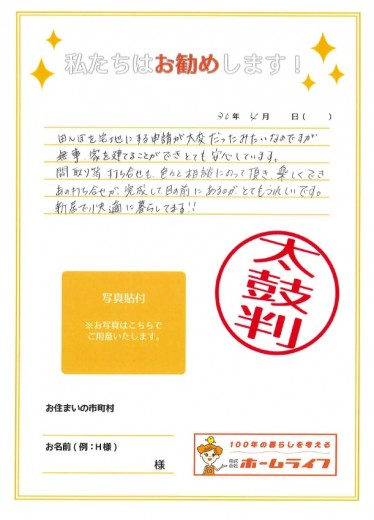 私たちはお勧めします！
30年 4月 日( )
田んぼを宅地にする申請が大変だったみたいなのですが
無事、家を建てることができとても安心しています。
間取り等打ち合せも、色んと相談にのって頂き、楽しくでき
あの打ち合せが、完成して目の前にあるのがとてもうれしいです。
新居で快適に暮らしてます!!
太鼓判
写真貼付
※お写真はこちらで
ご用意いたします。
お住まいの市町村
お名前(例：H様)
様
100年の暮らしを考える
株式会社 ホームライフ